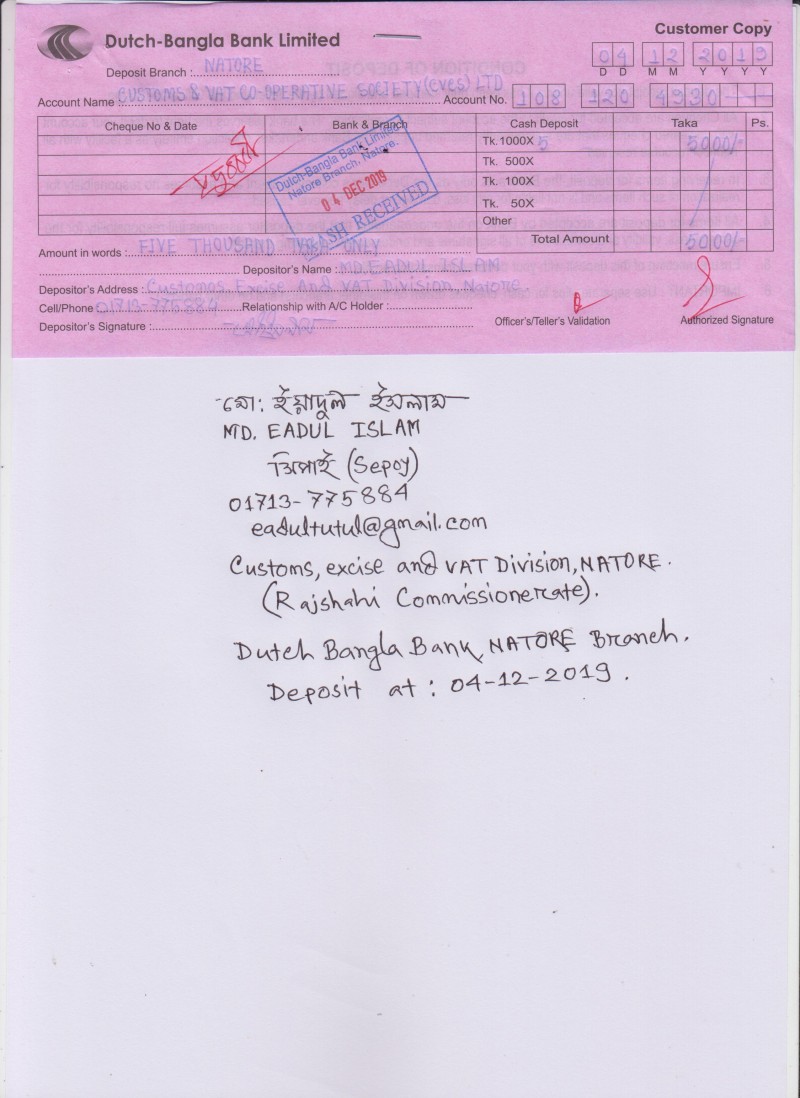 Customer Copy
Dutch-Bangla Bank Limited
04 12 2019
D D M M Y Y Y Y
Deposit Branch : NATORE
Account Name : CUSTOMS & VAT CO-OPERATIVE SOCIETY (CVCS) LTD Account No. 108 120 4930
Cheque No & Date Bank & Branch Cash Deposit Taka Ps.
Tk. 1000X 5 5000/-
Tk. 500X
Tk. 100X
Tk. 50X
Other
Total Amount 5000/-
Dutch-Bangla Bank Limited
Natore Branch, Natore.
04 DEC 2019
CASH RECEIVED
Amount in words : FIVE THOUSAND TAKA ONLY
Depositor's Name : MD. EADUL ISLAM
Depositor's Address : Customs, Excise And VAT Division, Natore.
Cell/Phone : 01713-775884 Relationship with A/C Holder :
Depositor's Signature :
Officer's/Teller's Validation
Authorized Signature
মো: ইয়াদুল ইসলাম
MD. EADUL ISLAM
সিপাই (Sepoy)
01713-775884
eadultutul@gmail.com
Customs, excise and VAT Division, NATORE.
(Rajshahi Commissionerate).
Dutch Bangla Bank, NATORE Branch.
Deposit at : 04-12-2019.